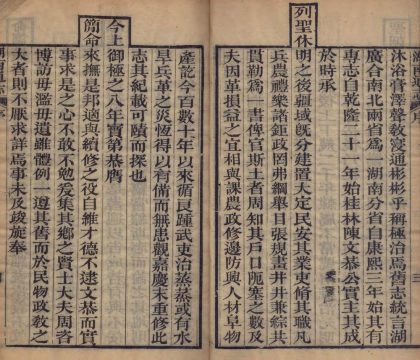 沐浴膏澤聲教覃通彬彬乎稱極治焉舊志統言湖
廣合南北兩省爲一湖南分省自康熙三年始其有
專志自乾隆二十一年始桂林陳文恭公實主其成
於時承
列聖休
明之後疆域旣分建置大定民安其業吏脩其職凡
兵農禮樂諸鉅政罔弗綱舉目張規畫井井兼綜其
貫勒爲一書俾官斯土者周知其戶口阨塞之數及
夫因革損益之宜相與課農政修邊防興人材阜物
產訖今百數十年以來循良踵武吏治蒸蒸或有水
旱兵革之災恆得以有備而無患觀嘉慶末重修此
志其紀載可賾而探也
今上
御極之八年寶第恭膺
簡命來撫是邦適與續修之役自維才德不逮文恭而實
事求是之心不敢不勉爰集其鄉之賢士大夫周咨
博訪毋濫毋遺雖體例一遵其舊而於民物政教之
大者則不厭求詳焉事未及竣旋奉